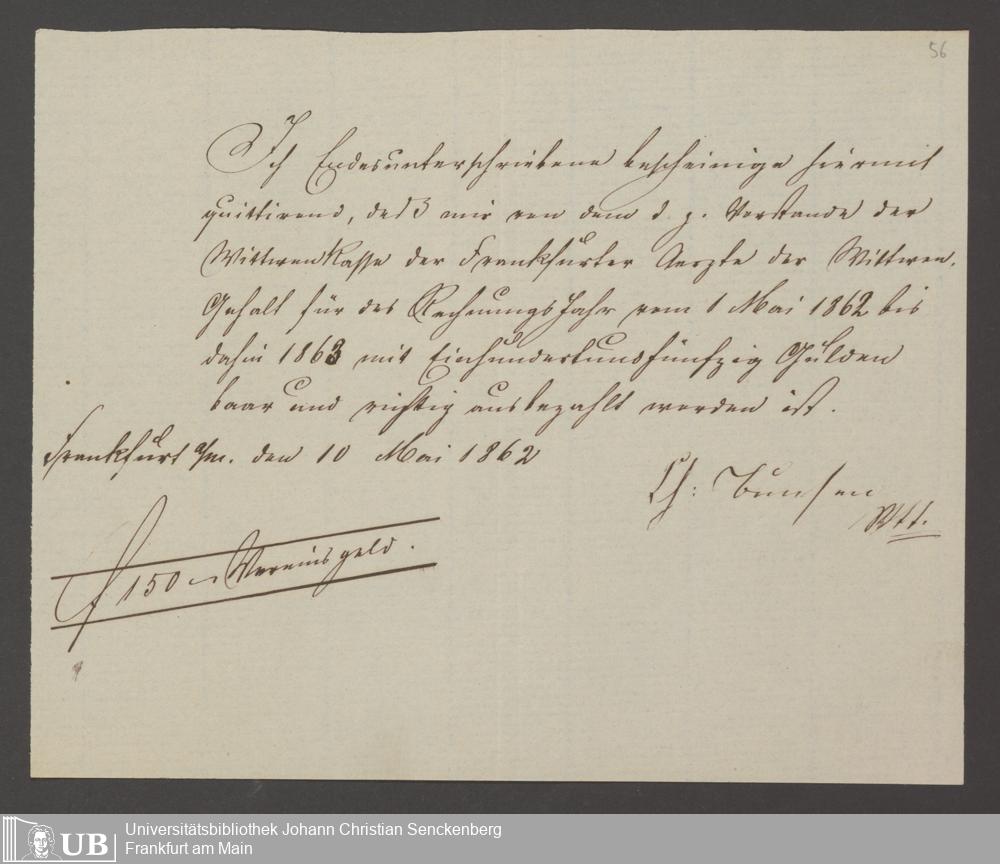 56
Ich Endesunterschriebene bescheinige hiermit
quittirend, daß mir von dem d. z. Vorstande der
Wittwen Kasse der Frankfurter Aerzte der Wittwen-
Gehalt für das Rechnungs Jahr vom 1 Mai 1862 bis
dahin 1863 mit Einhundertundfünfzig Gulden
baar und richtig ausbezahlt worden ist.
Frankfurt a/m. den 10 Mai 1862
Ch: Bunsen
Wtt.
f 150 Vereinsgeld.
UB
Universitätsbibliothek Johann Christian Senckenberg
Frankfurt am Main